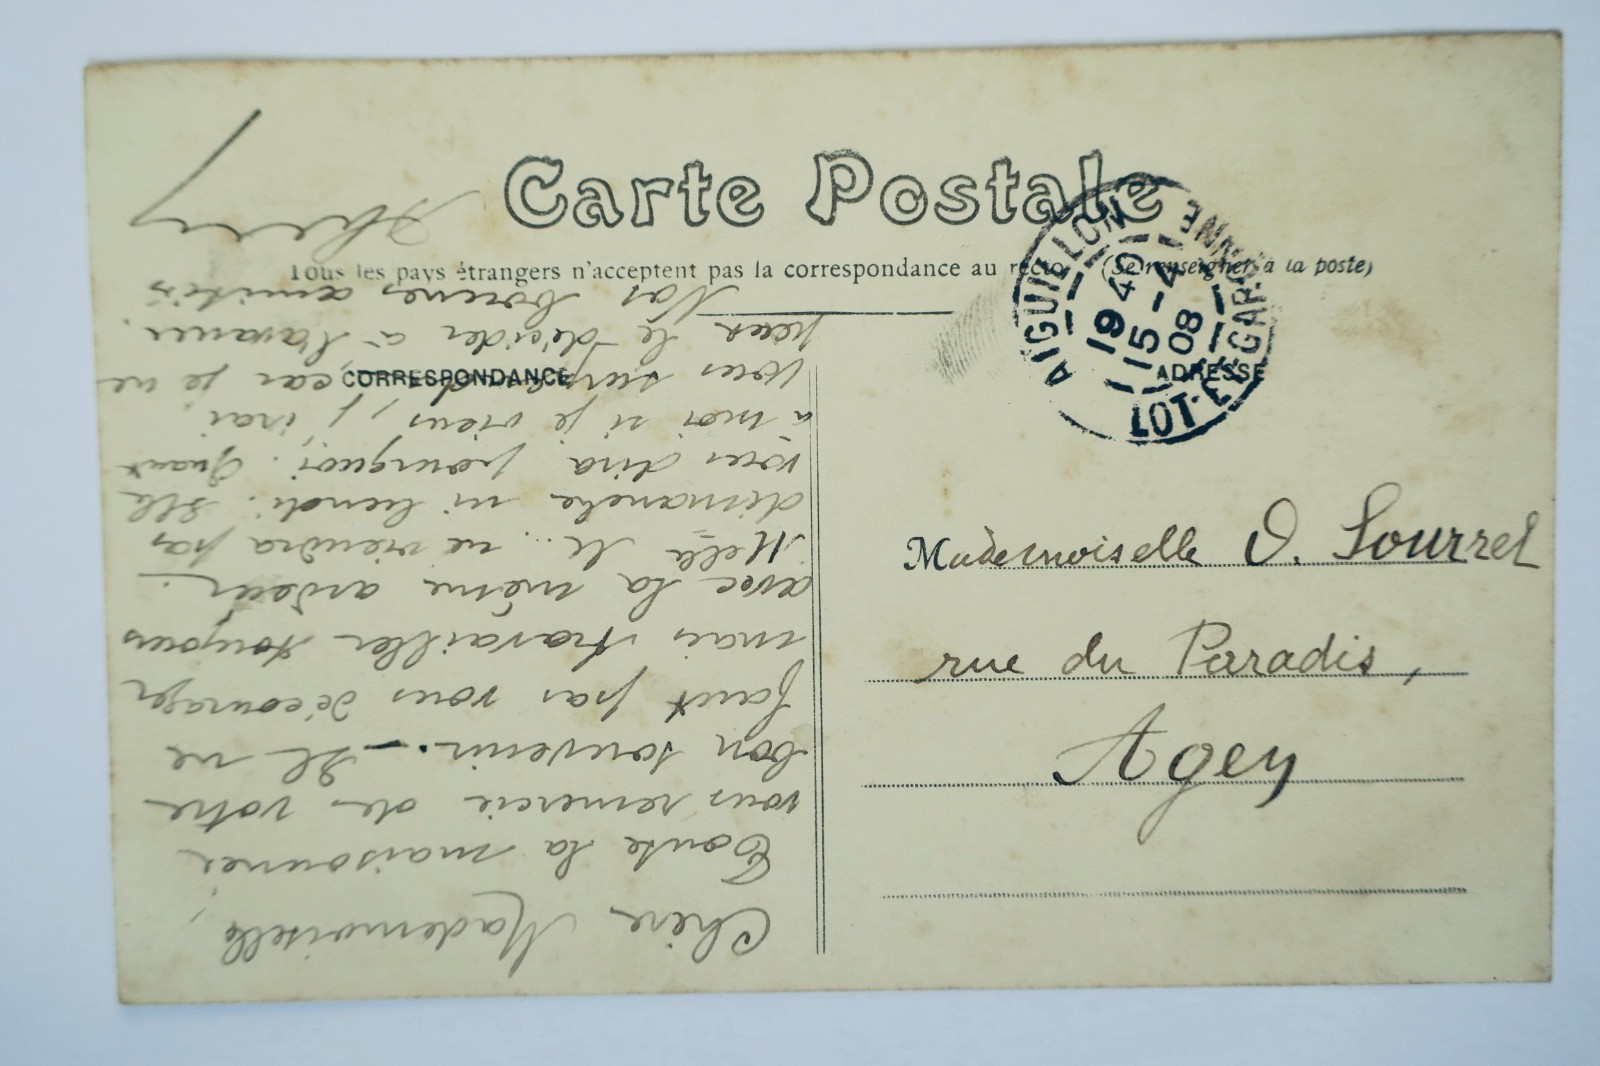 Carte Postale
Tous les pays étrangers n'acceptent pas la correspondance au recto (Se renseigner à la poste)
CORRESPONDANCE
ADRESSE
AIGUILLON
19 40
15 - 4
08
LOT-ET-GARONNE
Mademoiselle O. Sourrel
rue du Paradis,
Agen
Chère Mademoiselle,
Toute la maisonnée
vous remercie de votre
bon souvenir. — Il ne
faut pas vous décourager
mais travailler toujours
avec la même ardeur.
Melle M... ne viendra pas
dimanche ni lundi. Elle
vous dira pourquoi. Quant
à moi si je viens, j'irai
vous, car je ne
peux le décider à l'avance.
Nos bonnes amitiés